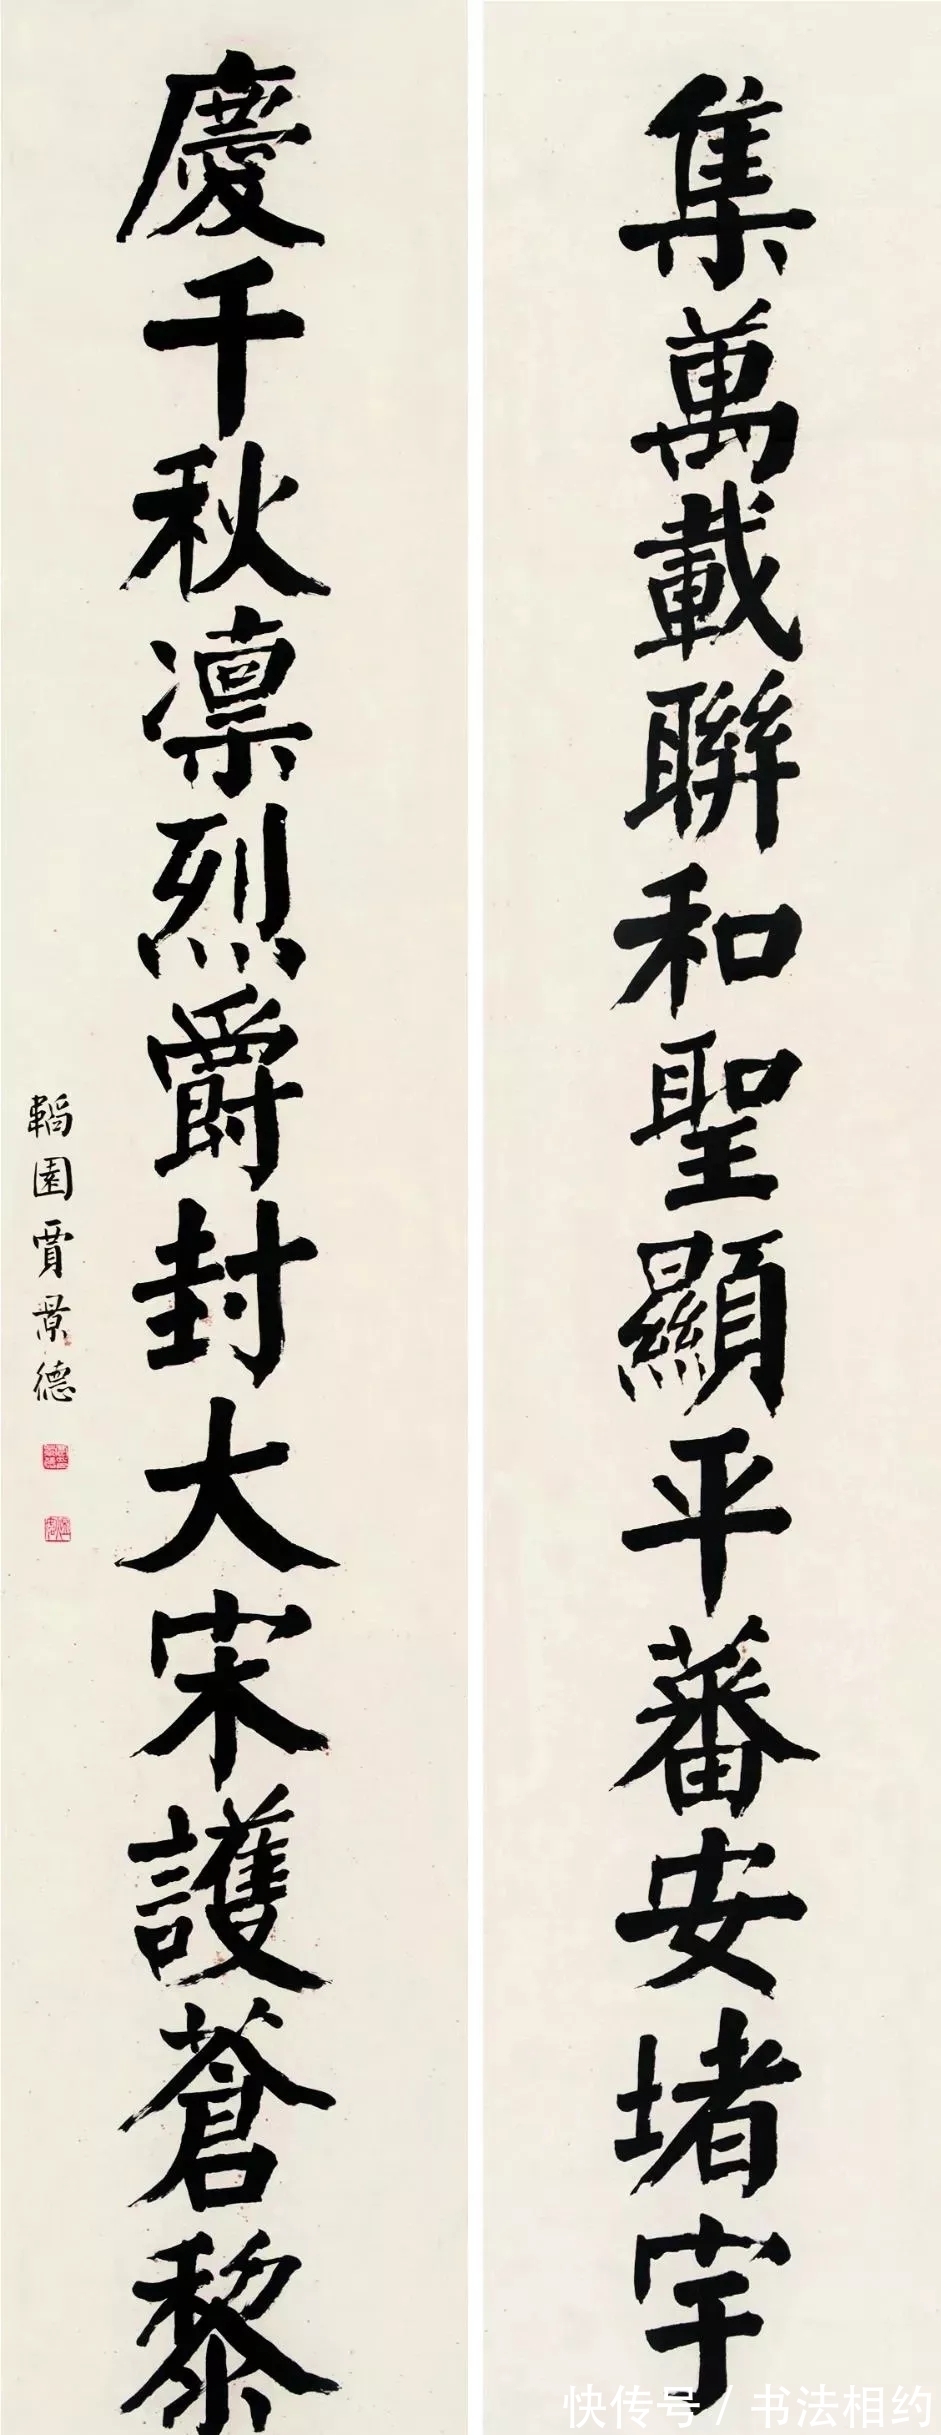 集萬載聯和聖顯平蕃安堵宇
慶千秋凛烈爵封大宋護蒼黎
韜園賈景德
快传号/书法相约